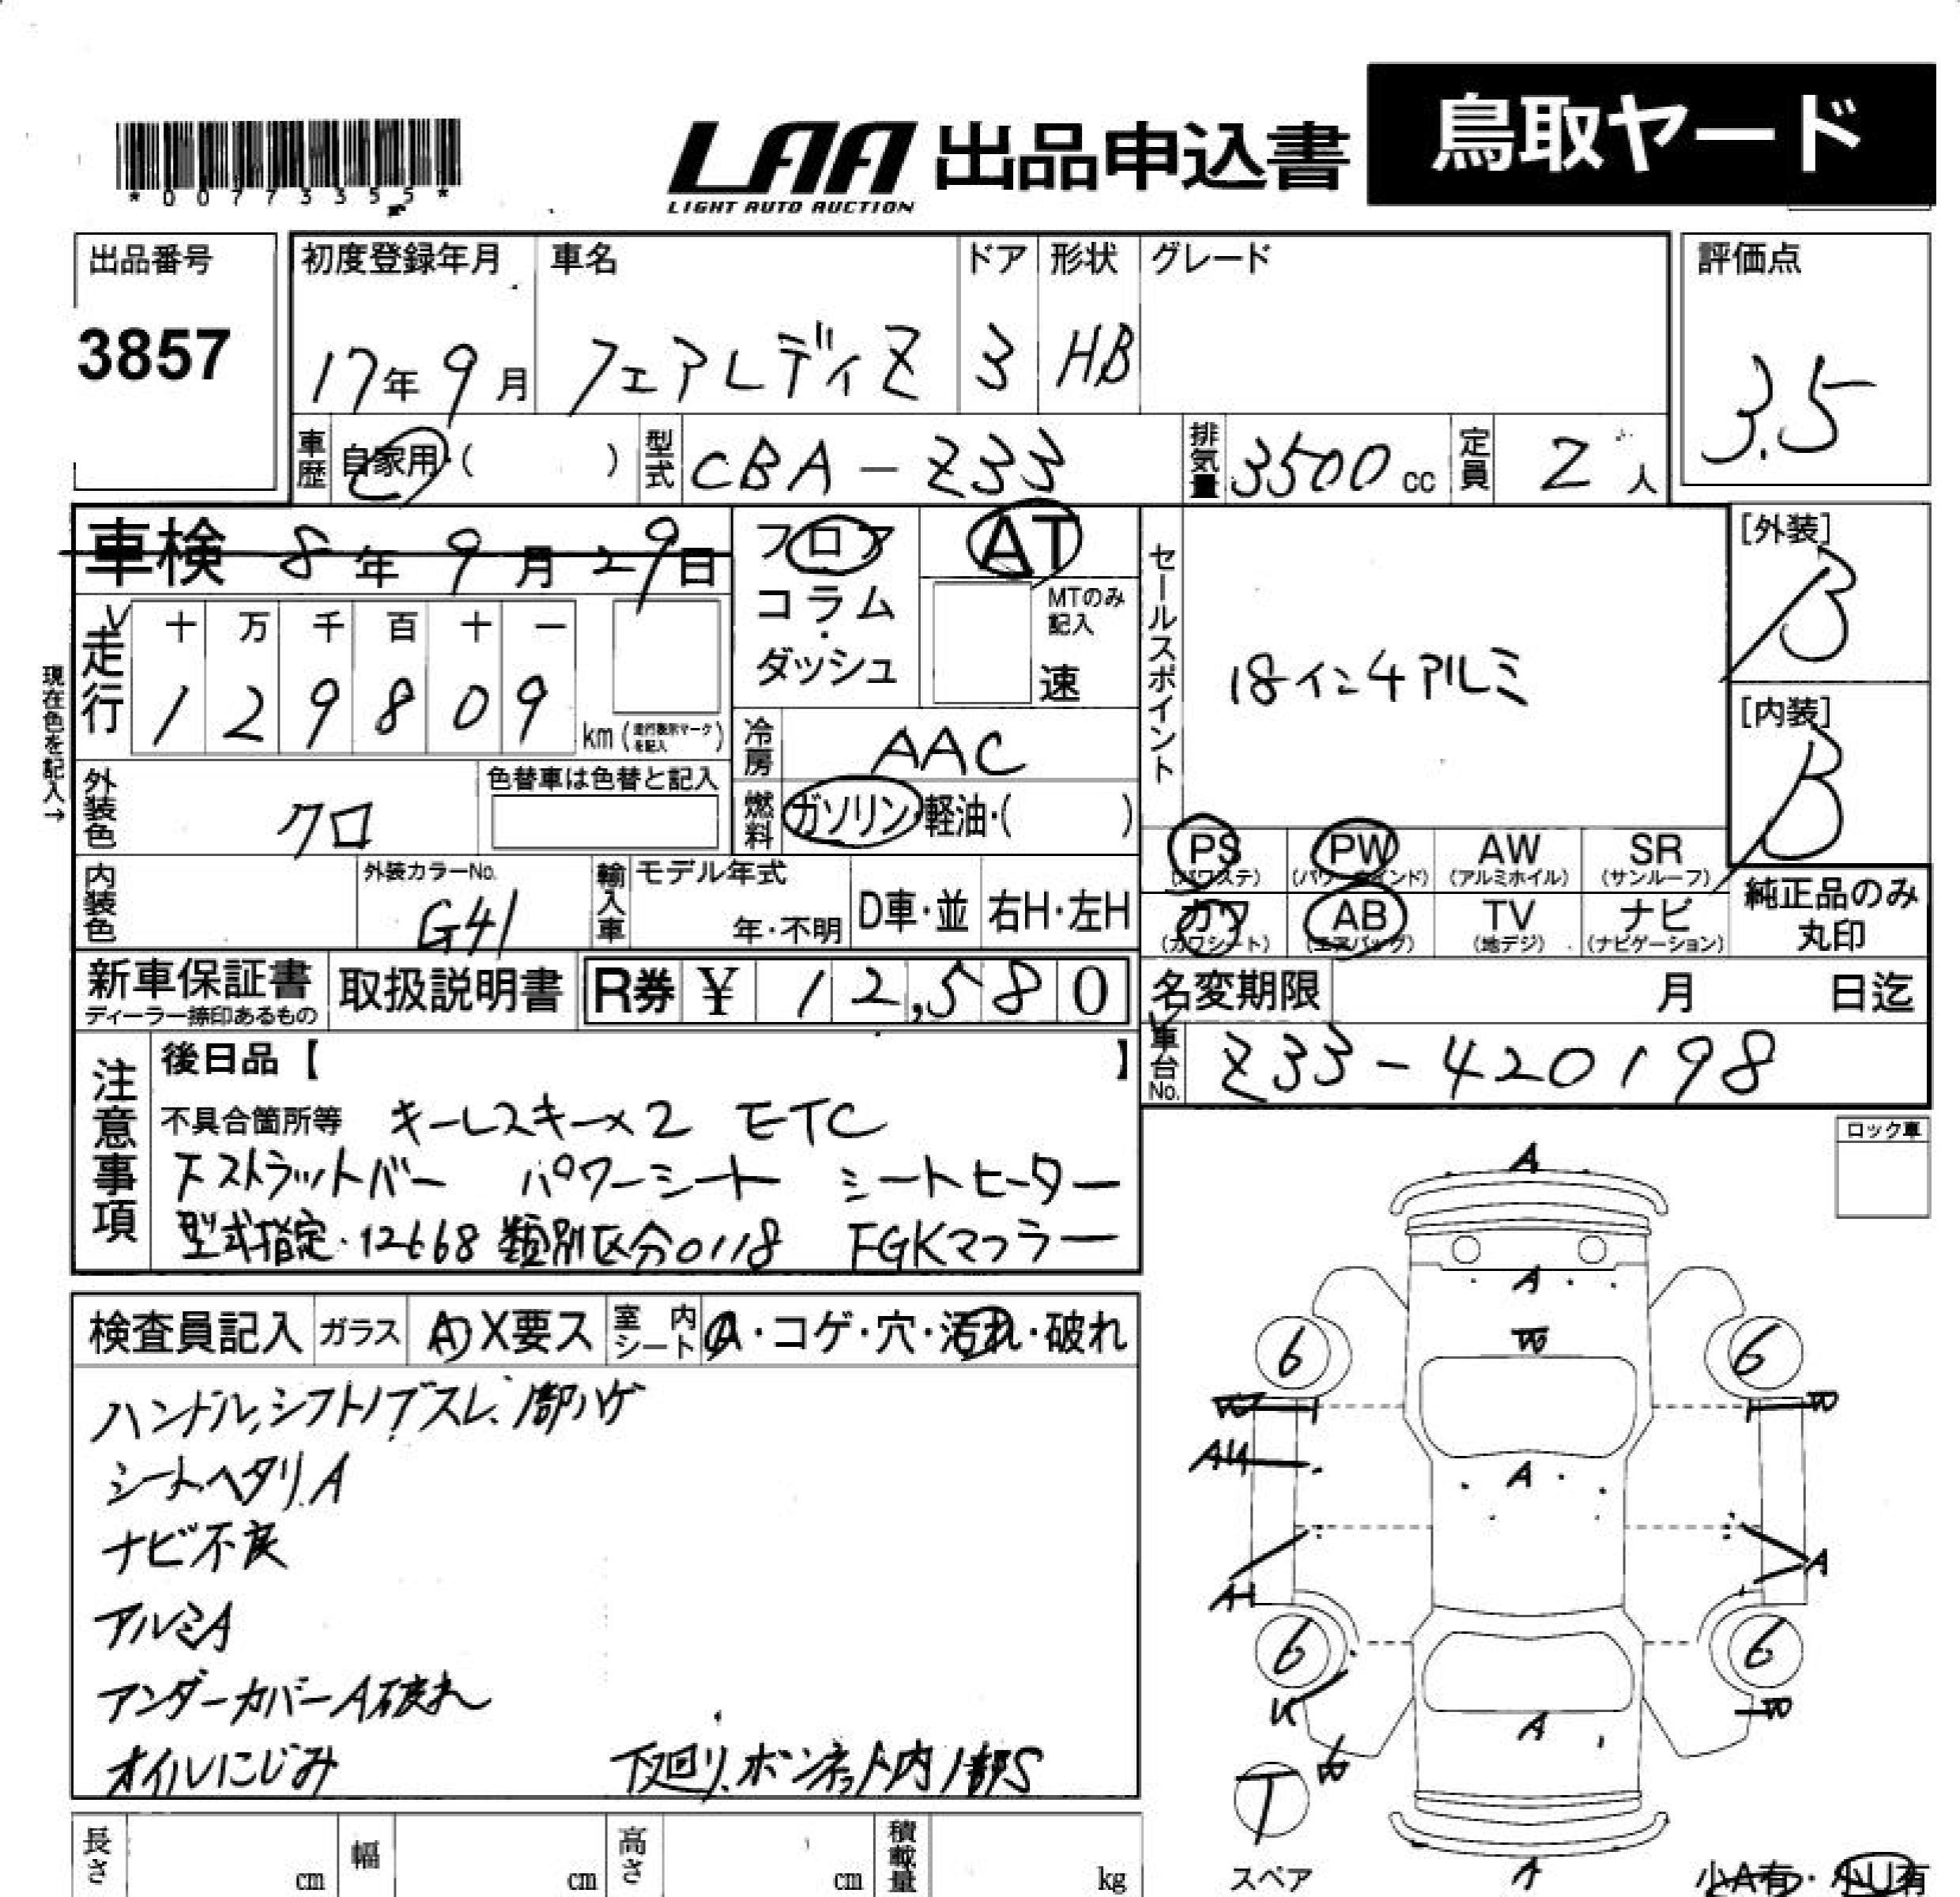 鳥取ヤード
LAA 出品申込書
LIGHT AUTO AUCTION
*00773355*
出品番号 初度登録年月 車名 ドア 形状 グレード 評価点
3857 17年 9月 フェアレディZ 3 HB 3.5
車歴 自家用・( ) 型式 CBA-Z33 排気量 3500cc 定員 2人
車検 8年 9月 29日 フロア AT セールスポイント [外装]
コラム・ MTのみ記入 B
走行 十 万 千 百 十 一 ダッシュ 速 18インチアルミ
1 2 9 8 0 9 km (走行表示マークを記入) [内装]
現在色を記入→
冷房 AAC B
外装色 クロ 色替車は色替と記入 燃料 ガソリン・軽油・( )
PS PW AW SR
(パワステ) (パワーウインド) (アルミホイル) (サンルーフ)
内装色 外装カラーNo. G41 輸入車 モデル年式 年・不明 D車・並 右H・左H
カワ AB TV ナビ 純正品のみ丸印
(カワシート) (エアバッグ) (地デジ) (ナビゲーション)
新車保証書 取扱説明書 R券 ¥ 12,580 名変期限 月 日迄
ディーラー捺印あるもの
車台No. Z33-420198
注意事項 後日品【 】
不具合箇所等 キーレスキー×2 ETC
F ストラットバー パワーシート シートヒーター
型式指定・12668 類別区分0118 FGKマフラー
ロック車
検査員記入 ガラス A X要ス 室内シート A・コゲ・穴・汚れ・破れ
ハンドル,シフトノブスレ、1部ハゲ
シートヘタリ,A
ナビ不良
アルミA
アンダーカバーA破れ
オイルにじみ 下廻り,ボンネット内1部S
A
A
W
6 6
W W
A
A
6 6
W
A
T
A
スペア 小A有・小U有
長さ cm 幅 cm 高さ cm 積載量 kg